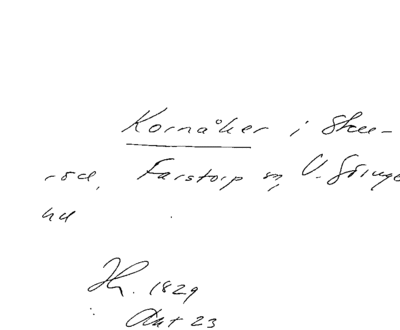 Kornåker i Sku-
röd, Farstorp sn, V. Göinge
hd
Jh. 1829
Akt 23